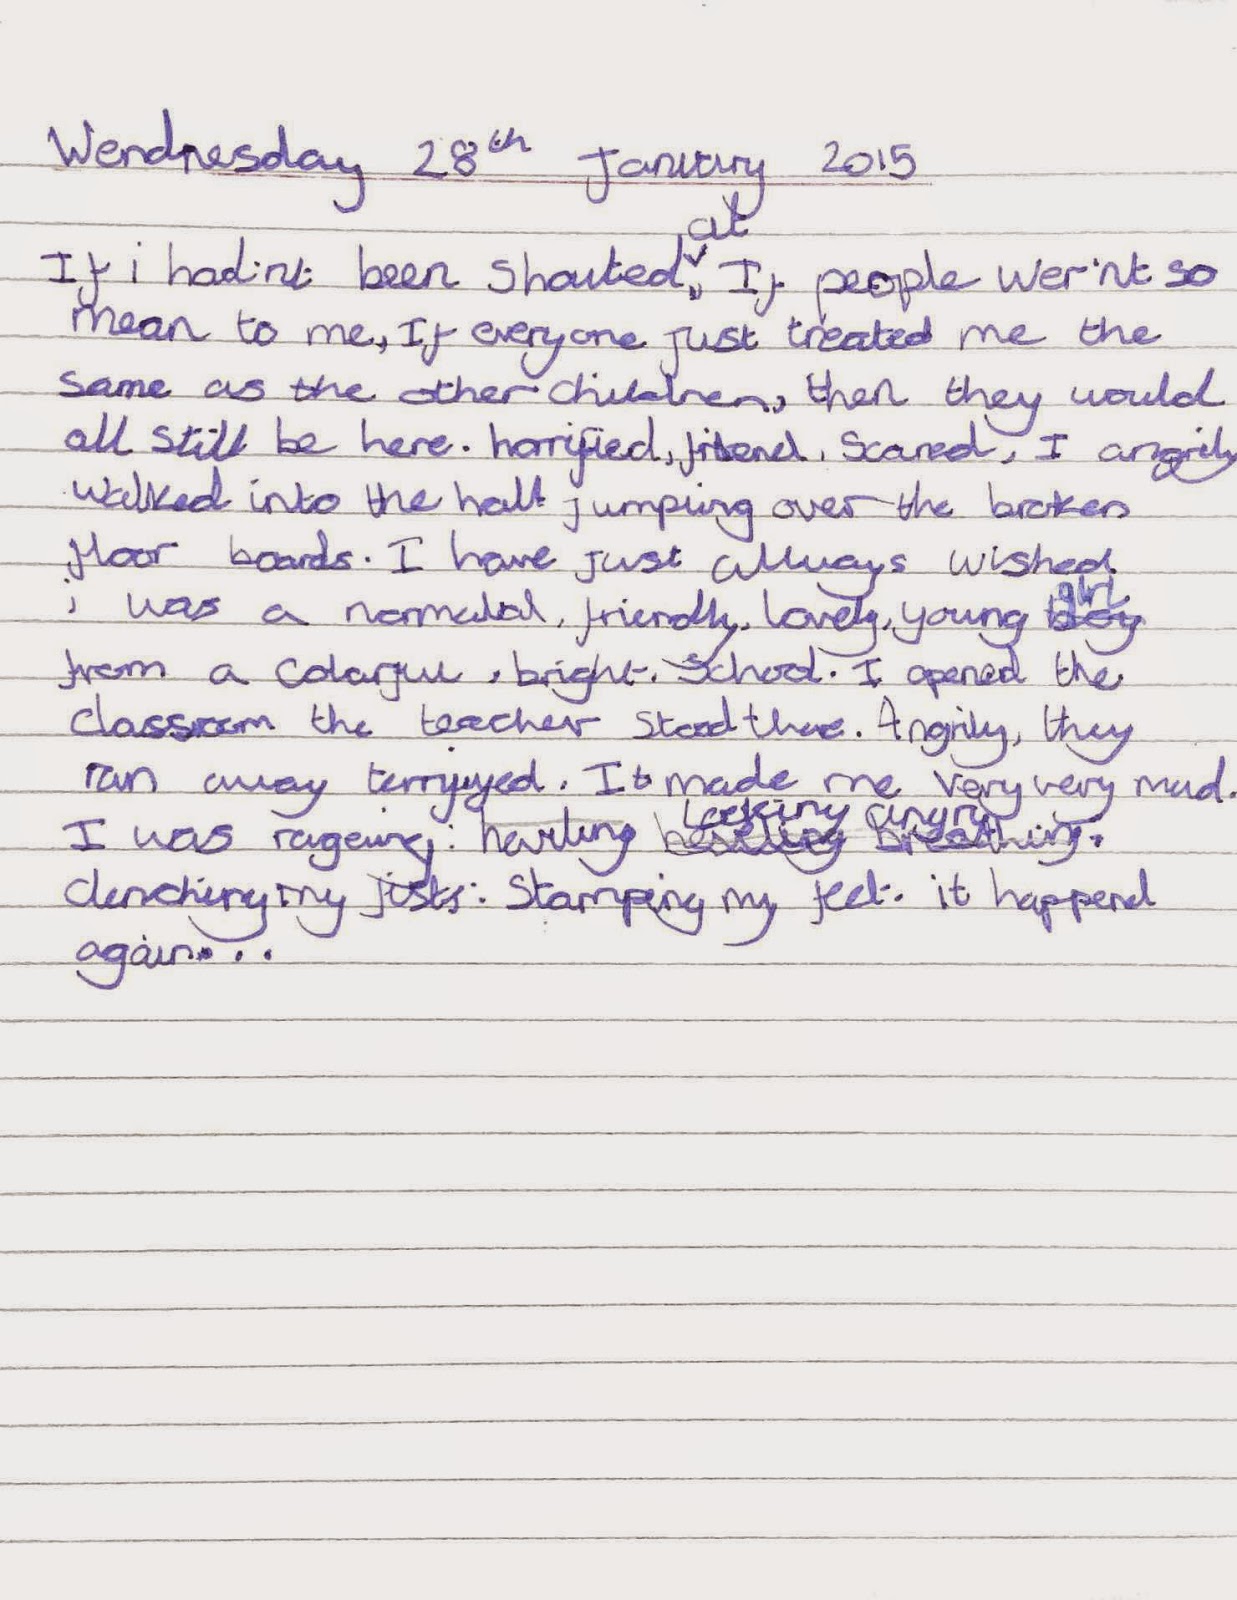 Wendnesday 28th January 2015
at
If i had'nt been Shouted, If people wer'nt so
mean to me, If everyone just treated me the
same as the other children, then they would
all still be here. horrified, scared, I angrily
walked into the hall jumping over the broken
floor boards. I have just allways wished
girl
i was a friendly, lovely, young boy
from a colarful, bright. School. I opened the
classroom the teacher stood there. Angrily, they
ran away terryfyed. It made me very very mad.
looking angry
I was rageing: breathing.
clenching my fists: Stamping my feet. it happend
again...